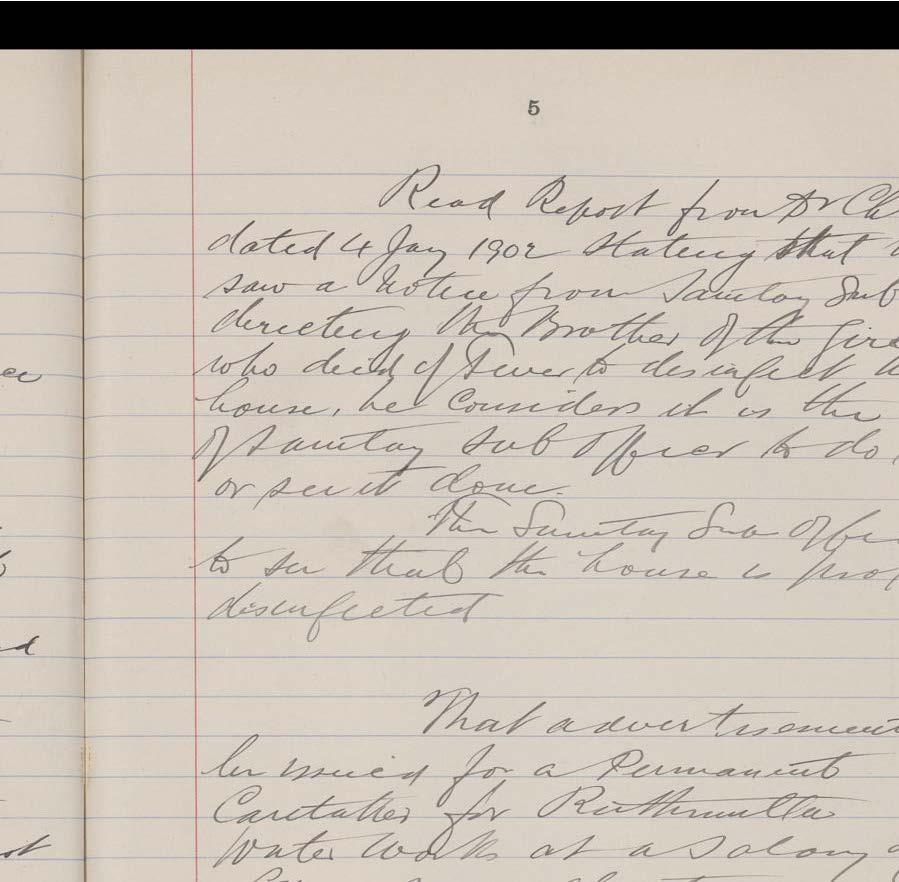 5
Read Report from Dr Ch
dated 4 Jay 1902 stating that
saw a Notice from Sanitay Sub
directing the Brother of the Gire
who deid of Fever to disinfect
house, he considers it is the
of Sanitay Sub Officer to do
or see it done.
The Sanitay Sub Offi
to see that the house is prop
disinfected
That advertisement
be issued for a Permanent
Caretaker for Rathmullan
Water Works at a Salary